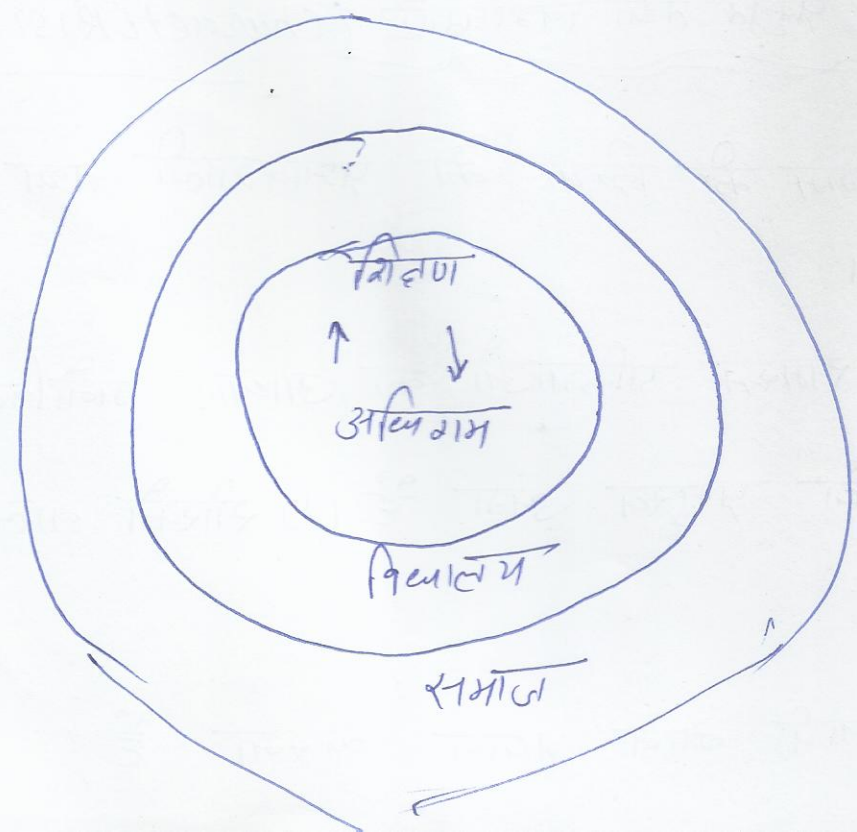 शिक्षण
↑ ↓
अधिगम
विद्यालय
समाज